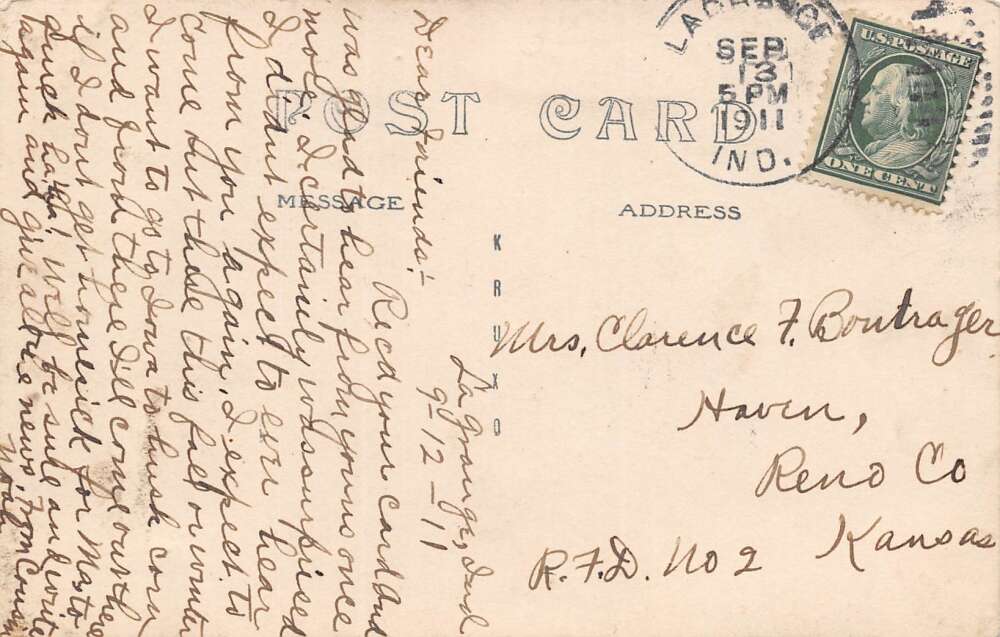 POST CARD
MESSAGE
ADDRESS
KRUXO
LAGRANGE
SEP 13
5 PM
1911
IND.
U.S. POSTAGE
ONE CENT
LaGrange, Ind
9-12-11
Dear Friends:-
Rec'd your card and
was glad to hear from youns once
more. I certainly was surprised
I didnt expect to ever hear
from you again. I expect to
come out these this fall or winter
I want to go to Iowa to husk corn
and from there I'll come out there
if I dont get homesick for Ma to
quick haha! Well be sure and write
again and give all the news, From Cousin
Noah
Mrs, Clarence F. Bontrager
Haven,
Reno Co
Kansas
R.F.D. No 2